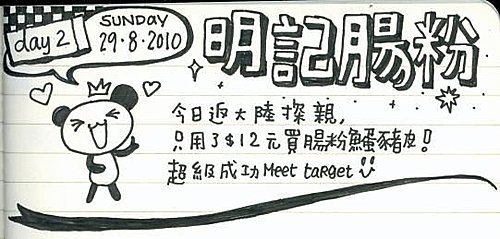 day 2
SUNDAY
29·8·2010
明記腸粉
今日返大陸探親,
只用了$12元買腸粉魚蛋豬皮!
超級成功Meet target